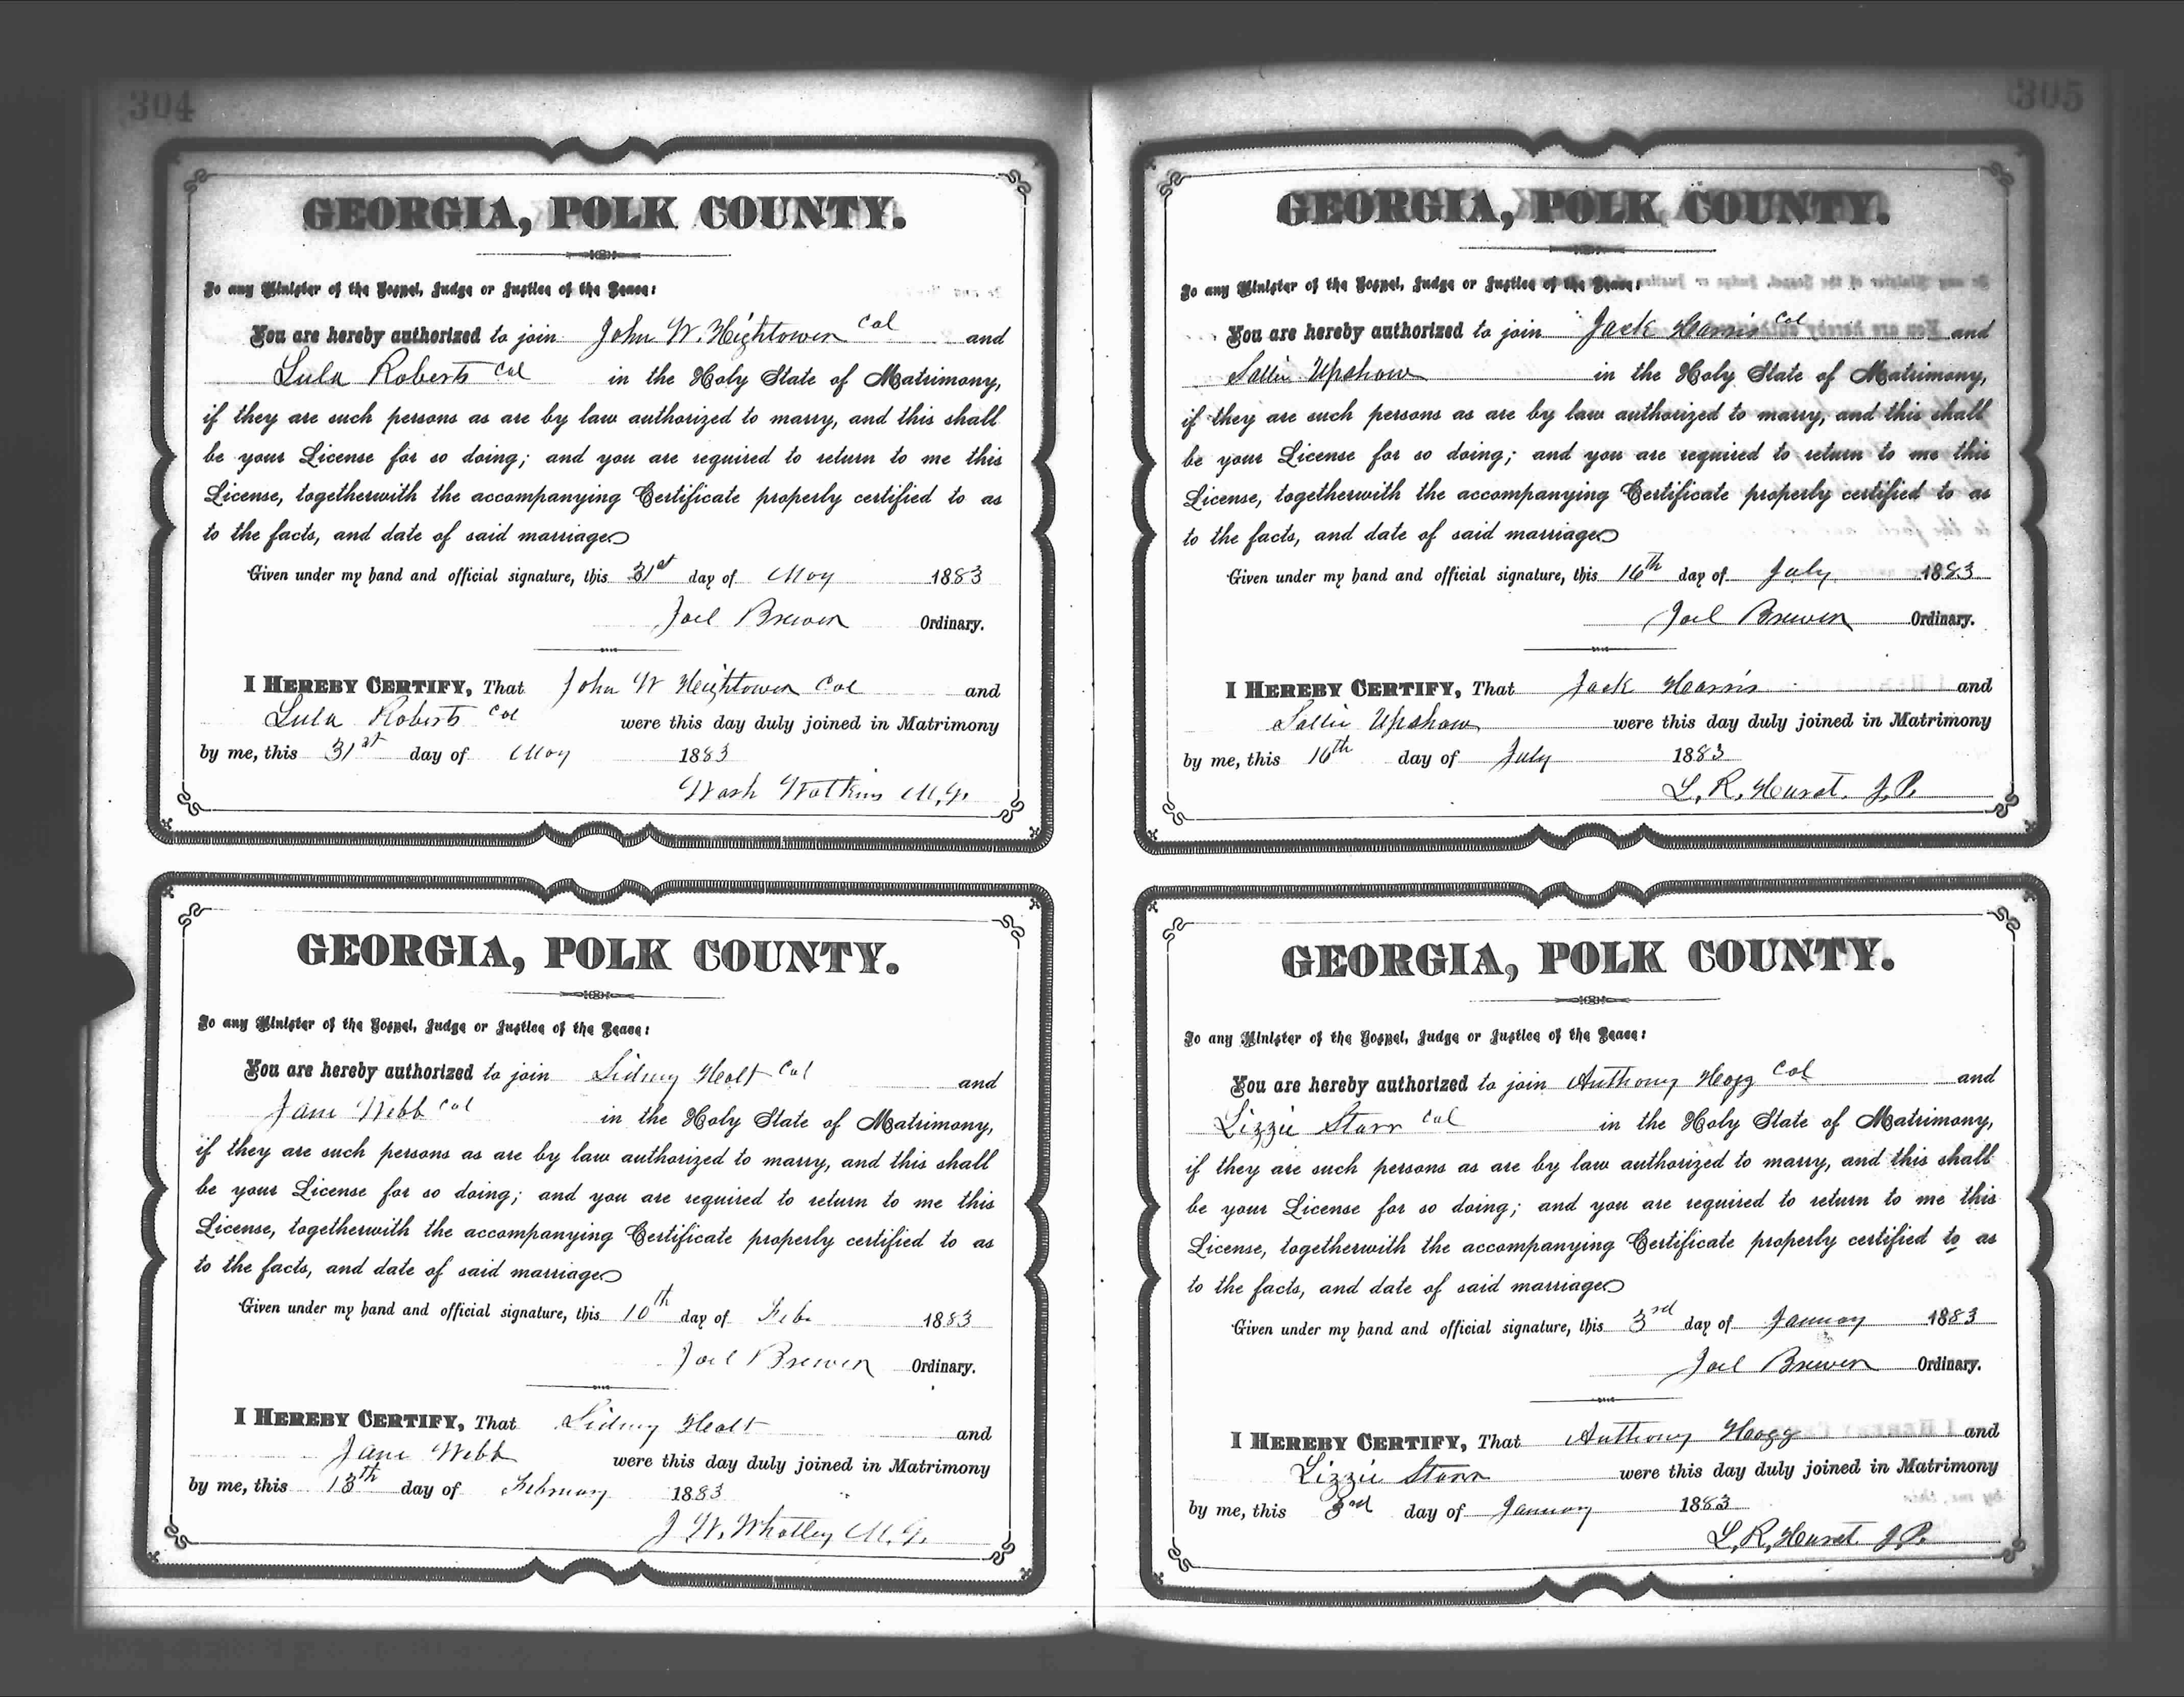 304
GEORGIA, POLK COUNTY.
To any Minister of the Gospel, Judge or Justice of the Peace:
You are hereby authorized to join John W. Hightower Col and
Lula Roberts Col in the Holy State of Matrimony,
if they are such persons as are by law authorized to marry, and this shall
be your License for so doing; and you are required to return to me this
License, togetherwith the accompanying Certificate properly certified to as
to the facts, and date of said marriage
Given under my hand and official signature, this 31st day of May 1883
Joel Brewer Ordinary.
I HEREBY CERTIFY, That John W Heightower Col and
Lula Roberts Col were this day duly joined in Matrimony
by me, this 31st day of May 1883
Wash Watkins M.G.
GEORGIA, POLK COUNTY.
To any Minister of the Gospel, Judge or Justice of the Peace:
You are hereby authorized to join Sidney Holt Col and
Jane Webb Col in the Holy State of Matrimony,
if they are such persons as are by law authorized to marry, and this shall
be your License for so doing; and you are required to return to me this
License, togetherwith the accompanying Certificate properly certified to as
to the facts, and date of said marriage
Given under my hand and official signature, this 10th day of Feb. 1883
Joel Brewer Ordinary.
I HEREBY CERTIFY, That Sidney Holt and
Jane Webb were this day duly joined in Matrimony
by me, this 13th day of February 1883
J W. Whatley M.G.
305
GEORGIA, POLK COUNTY.
To any Minister of the Gospel, Judge or Justice of the Peace:
You are hereby authorized to join Jack Harris Col and
Sallie Upshaw in the Holy State of Matrimony,
if they are such persons as are by law authorized to marry, and this shall
be your License for so doing; and you are required to return to me this
License, togetherwith the accompanying Certificate properly certified to as
to the facts, and date of said marriage
Given under my hand and official signature, this 16th day of July 1883
Joel Brewer Ordinary.
I HEREBY CERTIFY, That Jack Harris and
Sallie Upshaw were this day duly joined in Matrimony
by me, this 16th day of July 1883
L. R. Hurst. J.P.
GEORGIA, POLK COUNTY.
To any Minister of the Gospel, Judge or Justice of the Peace:
You are hereby authorized to join Anthony Hogg Col and
Lizzie Starr Col in the Holy State of Matrimony,
if they are such persons as are by law authorized to marry, and this shall
be your License for so doing; and you are required to return to me this
License, togetherwith the accompanying Certificate properly certified to as
to the facts, and date of said marriage
Given under my hand and official signature, this 3rd day of January 1883
Joel Brewer Ordinary.
I HEREBY CERTIFY, That Anthony Hogg and
Lizzie Starr were this day duly joined in Matrimony
by me, this 3rd day of January 1883
L. R. Hurst. J.P.